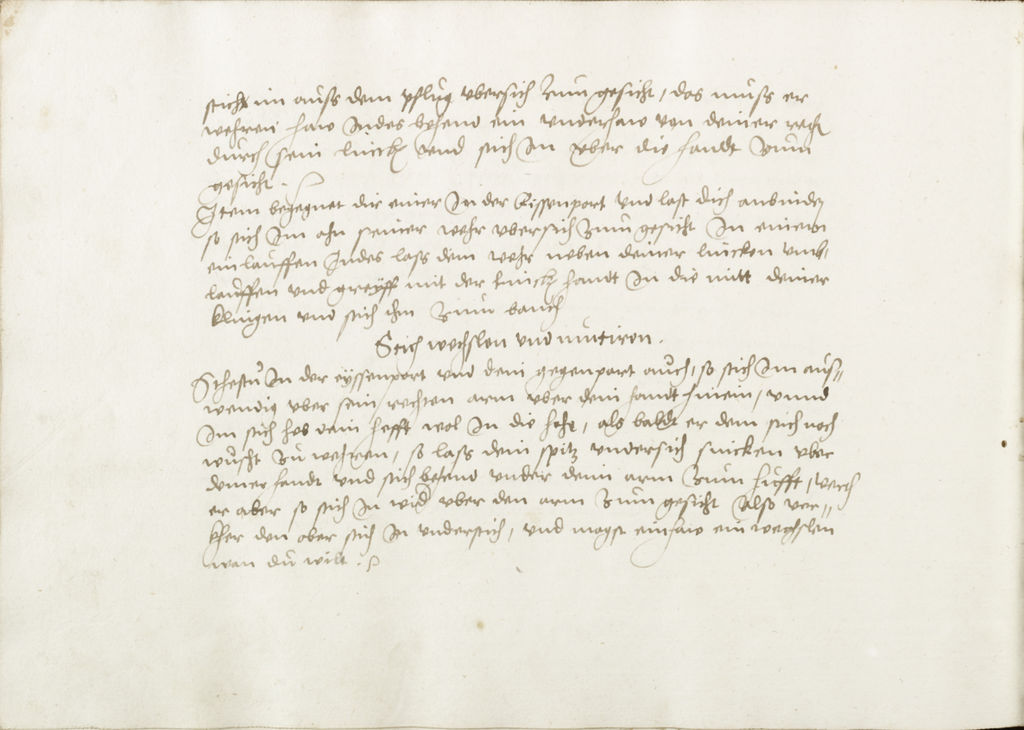 stich im auss dem pflug ubersich zum gesicht, das muss er
wehren haw Indes behend ein underhaw von deiner rech
durch sein linck und stich Im uber die handt zum
gesicht.
Item begegnet dir einer In der Eissenport und last dich anbinden
so stich Im ahn seiner wehr ubersich zum gesicht In einem
einlauffen Indes lass dein wehr neben deiner lincken umb
lauffen und greyff mit der linck handt In die mitt deiner
klingen und stich ihm zum bauch
Stich wechslen und mutiren.
Sthestu In der eyssenport und dein gegenpart auch, so stich Im aus=
wendig uber sein rechten arm uber dein handt hinein, unnd
Im stich heb dein hefft wol In die hohe, als baldt er dem stich noch
wuscht zu wehren, so lass dein spitz undersich sincken uber
deiner handt und stich behend under deim arm zum hufft, versch
er aber so stich In wid uber den arm zum gesicht Also ver=
kher den ober stich In understich, und magst ein haw ein wechslen
wan du wilt.